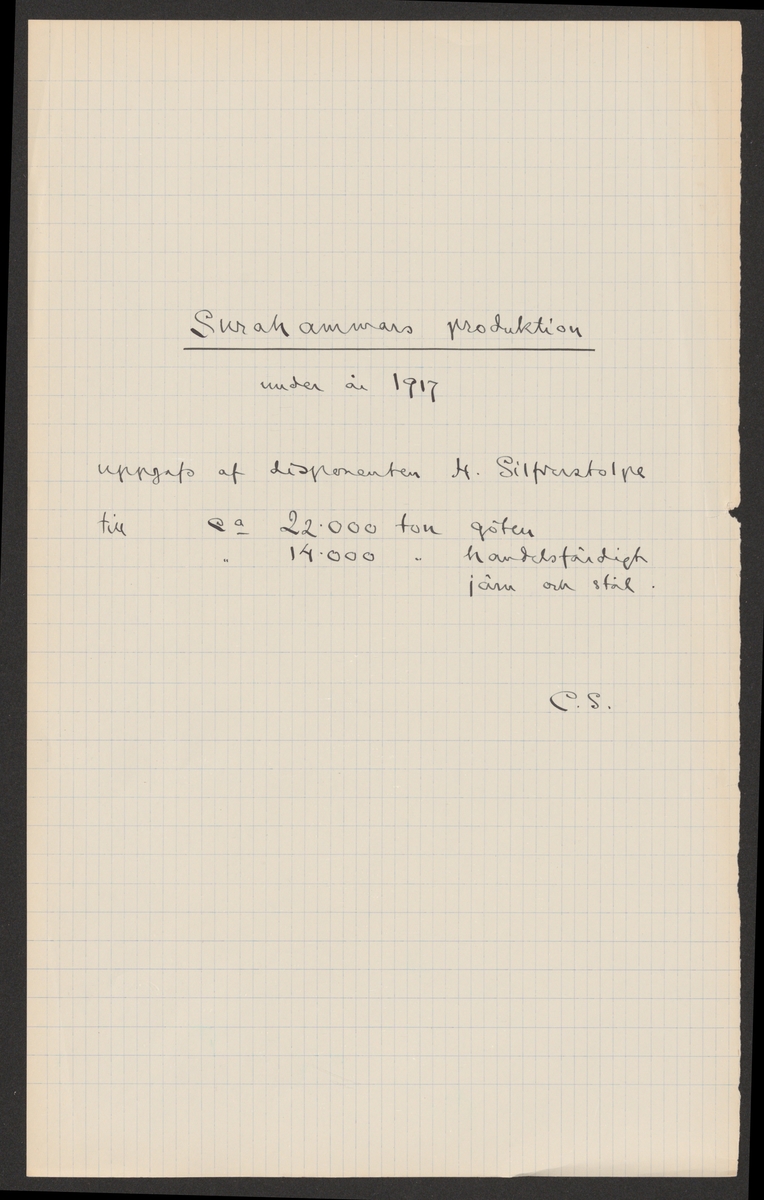 Surahammars produktion
under år 1917
uppgafs af disponenten H. Silfverstolpe
till ca 22.000 ton göten
" 14.000 " handelsfärdigt
järn och stål.
C.S.